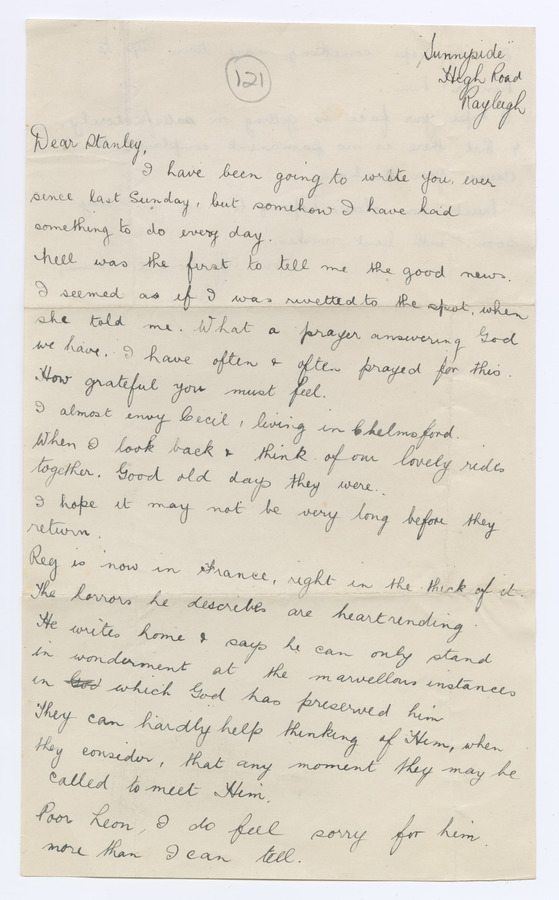 "Sunnyside"
High Road
Rayleigh
121
Dear Stanley,
I have been going to write you, ever
since last Sunday, but somehow I have had
something to do every day.
Nell was the first to tell me the good news.
I seemed as if I was rivetted to the spot, when
she told me. What a prayer answering God
we have. I have often & often prayed for this.
How grateful you must feel.
I almost envy Cecil, living in Chelmsford.
When I look back & think of our lovely rides
together. Good old days they were.
I hope it may not be very long before they
return.
Reg is now in France, right in the thick of it.
The horrors he describes are heartrending.
He writes home & says he can only stand
in wonderment at the marvellous instances
in God which God has preserved him
They can hardly help thinking of Him, when
they consider, that any moment they may be
called to meet Him.
Poor Leon, I do feel sorry for him.
more than I can tell.